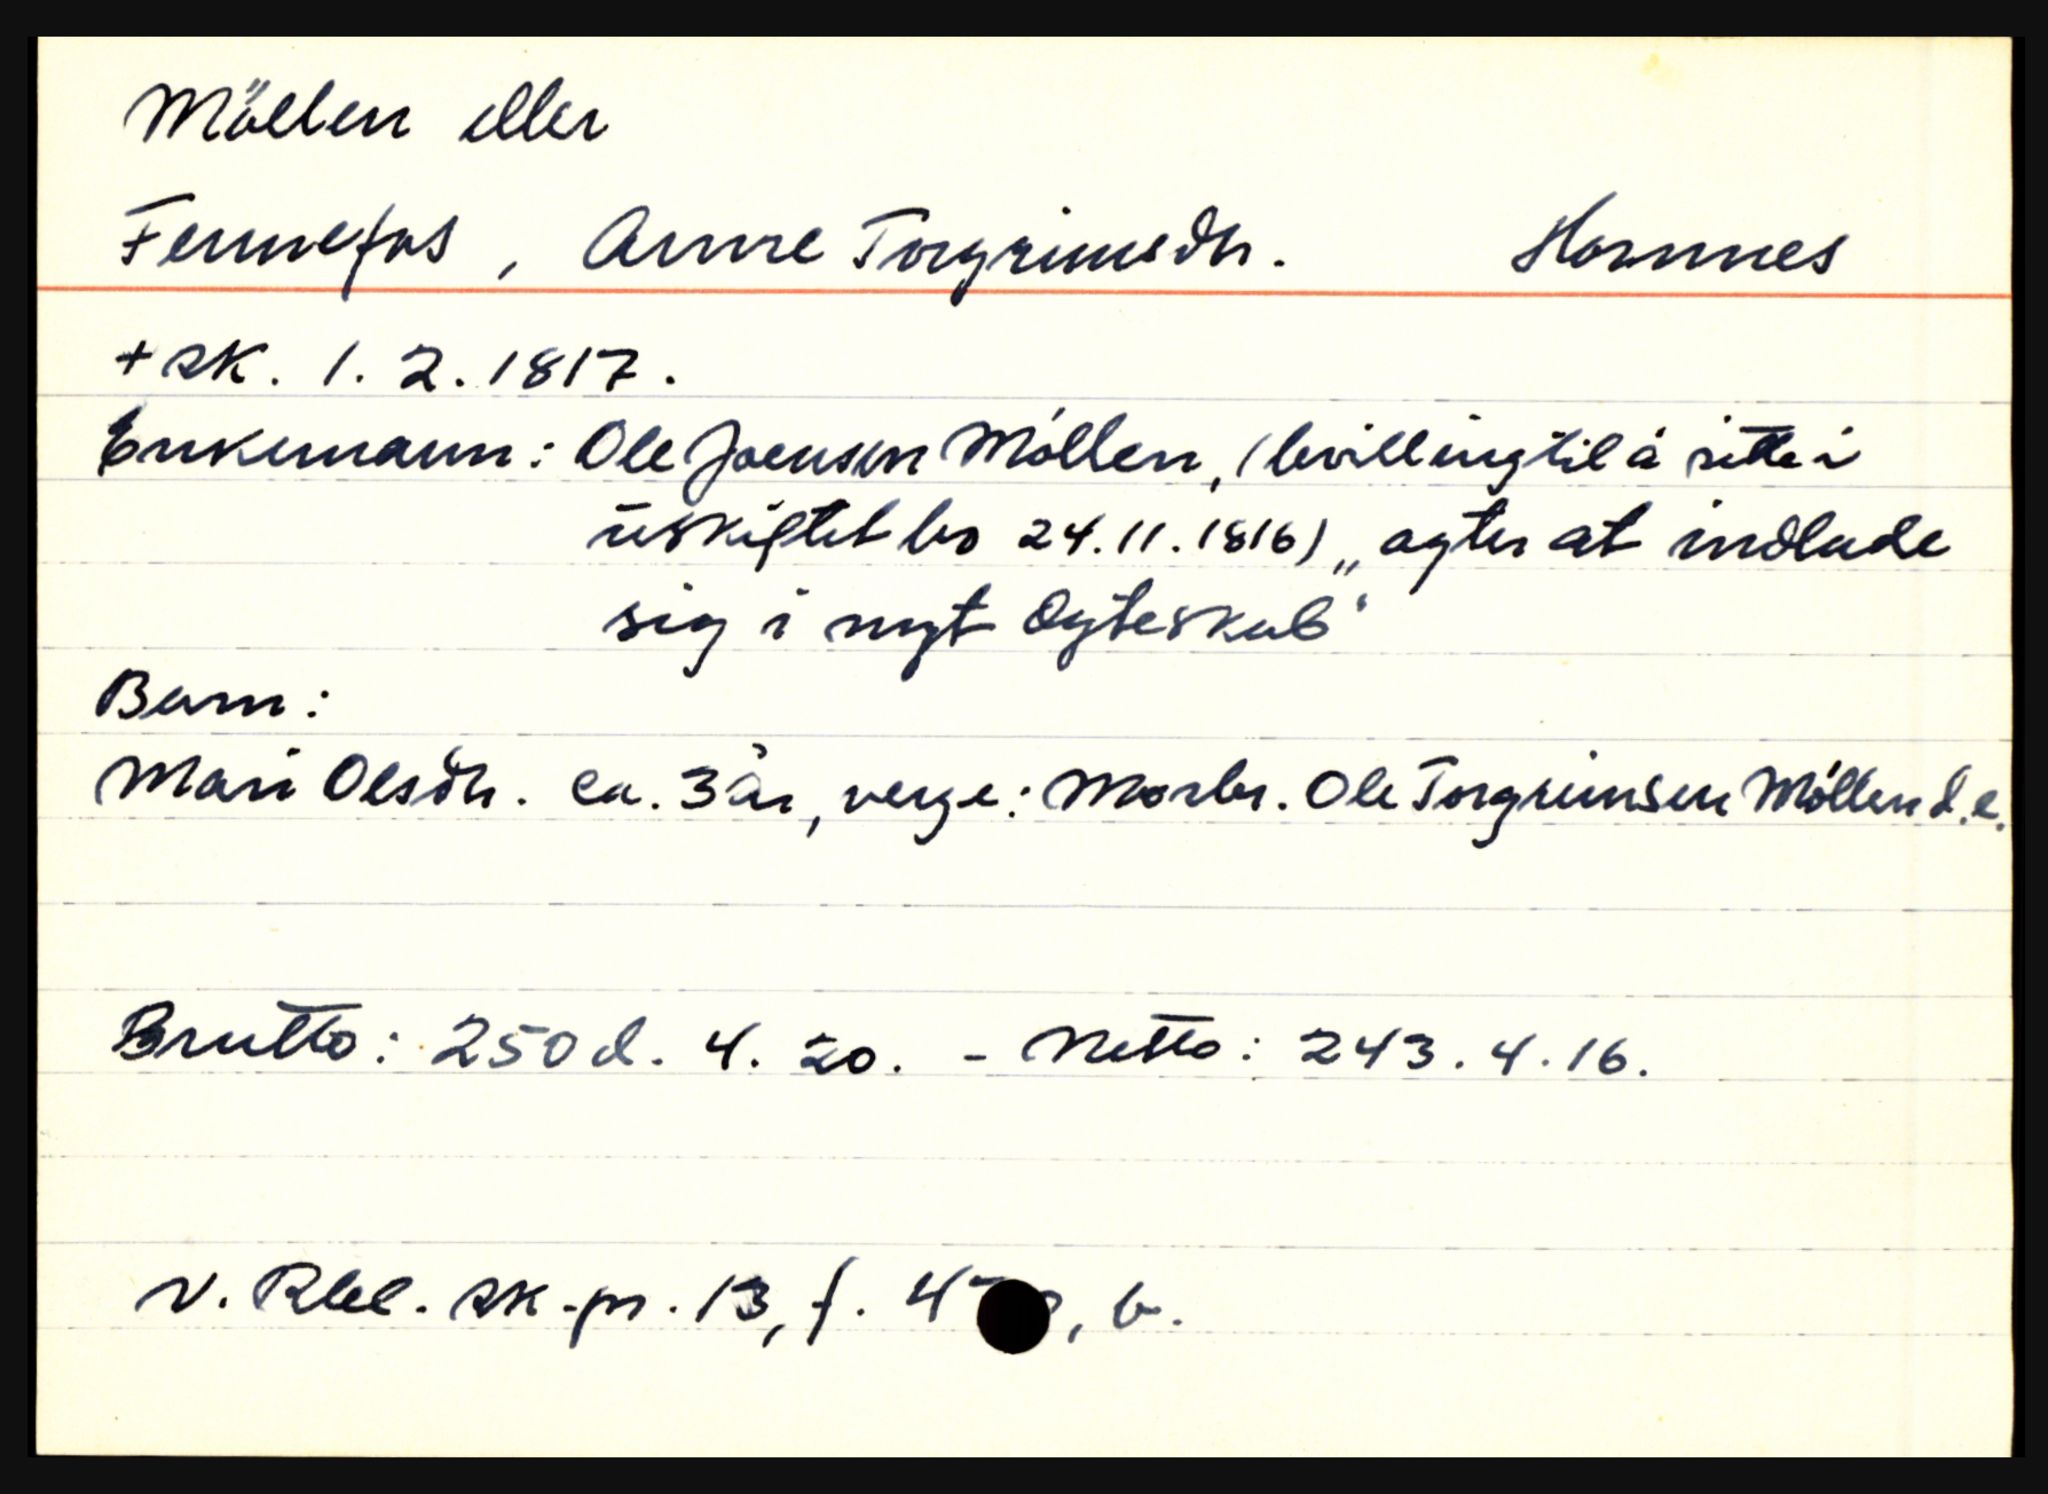 Möllen eller
Fennefos, Anne Torgrimsdtr. Hornnes
+ sk. 1. 2. 1817.
Enkemann: Ole Joensen Möllen, (bevilling til å sitte i
uskiftet bo 24.11.1816) „agter at indlade
sig i nyt Egteskab"
Barn:
Mari Olsdtr. ca. 3 år, verge: Morbr. Ole Torgrimsen Möllen d.e.
Brutto: 250 d. 4. 20. - Netto: 243. 4. 16.
V. Rbl. sk.-pr. 13, f. , b.